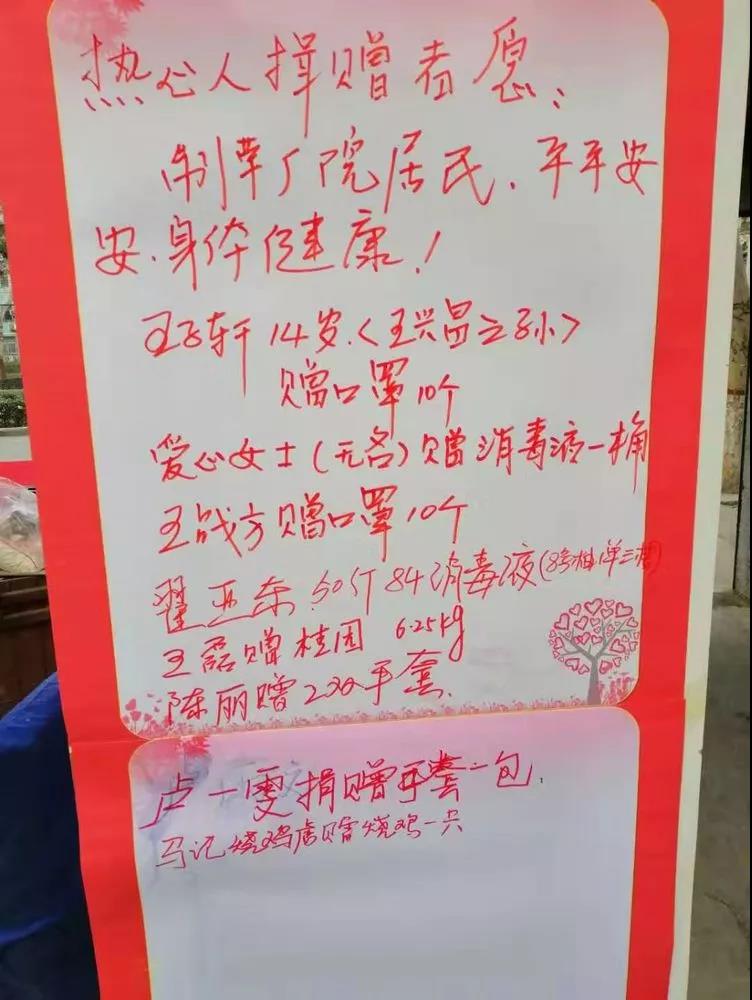 热心人捐赠者愿:
制革厂院居民、平平安
安、身体健康!
王子轩14岁.<王兴昌之孙>
赠口罩10个
爱心女士(无名)赠消毒液一桶
王战方赠口罩10个
翟亚东50斤84消毒液(8号楼单三楼)
王磊赠桂园 6.25kg
陈丽赠2双手套.
卢一雯捐赠手套一包.
马记烧鸡店赠烧鸡一只